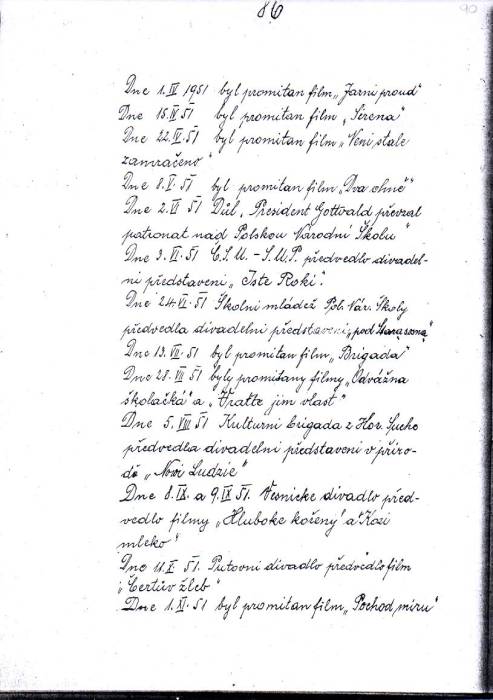 86
90
Dne 1. IV 1951 byl promitan film „Jarni proud"
Dne 15. IV 51 byl promitan film „Sirena"
Dne 22. IV. 51 byl promitan film „Neni stale
zamračeno"
Dne 8. V. 51 byl promitan film „Dva ohně"
Dne 2. VI 51 Důl „President Gottvald převzal
patronat nad Polskou Národni Školu"
Dne 3. VI. 51 Č.S.M. - S.M.P. předvedlo divadel-
ni představeni „Iste Roki".
Dne 24. VI. 51 Školni mládež Pol. Nár. Školy
předvedla divadelni představeni „pod
Dne 13. VII. 51 byl promitan film „Brigada"
Dne 28. VII 51 byly promitany filmy „Odvážna
školačka" a „Vraťte jim vlast"
Dne 5. VIII 51 Kulturni brigada z Hor. Suche
předvedla divadelni představeni v příro-
dě „Nowi Ludzie"
Dne 8. IX. a 9. IX 51. Vesnicke divadlo před-
vedlo filmy „Hluboke kořeny" a „Kozi
mleko"
Dne 11. X 51. Putovni divadlo předvedlo film
„Čertův žleb"
Dne 1. XI. 51 byl promitan film „Pochod miru"